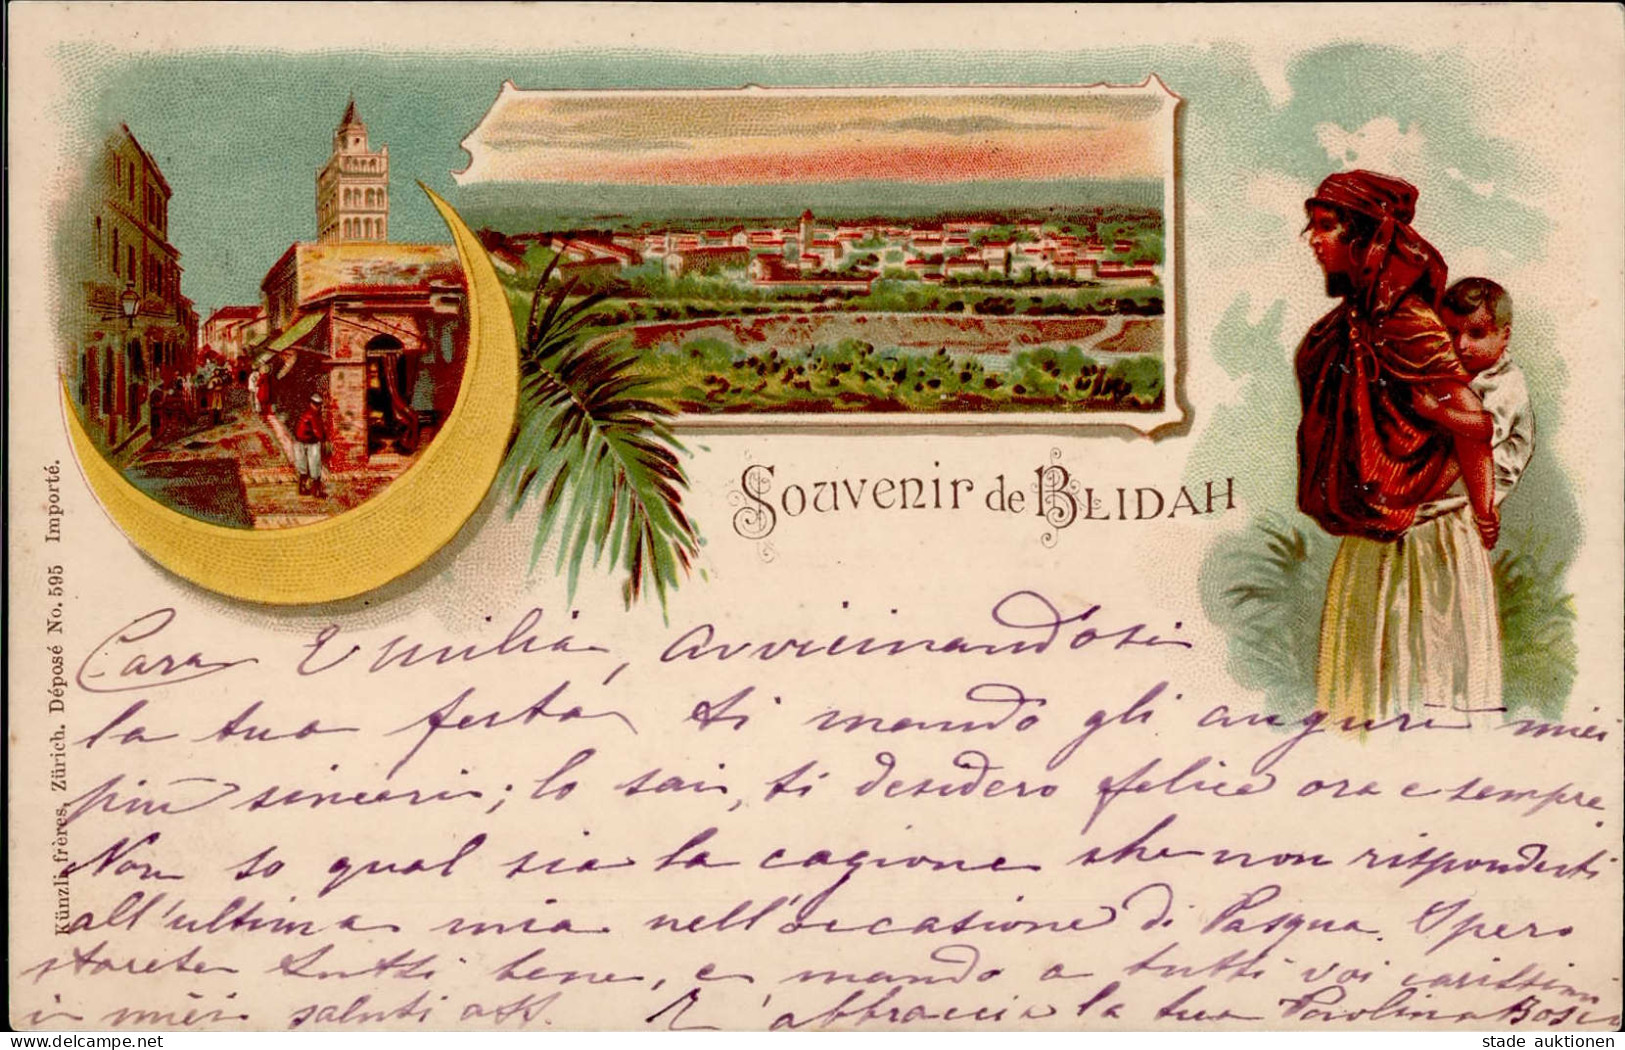 Souvenir de BLIDAH
Künzli frères, Zürich. Déposé No. 595 Importé.
Cara Emilia, avvicinandosi
la tua festa, ti mando gli auguri miei
più sinceri; lo sai, ti desidero felice ora e sempre.
Non so qual sia la cagione che non rispondesti
all'ultima mia nell'occasione di Pasqua. Spero
starete tutti bene, e mando a tutti voi carissimi
i miei saluti aff. T'abbraccia la tua Paolina
stade auktionen